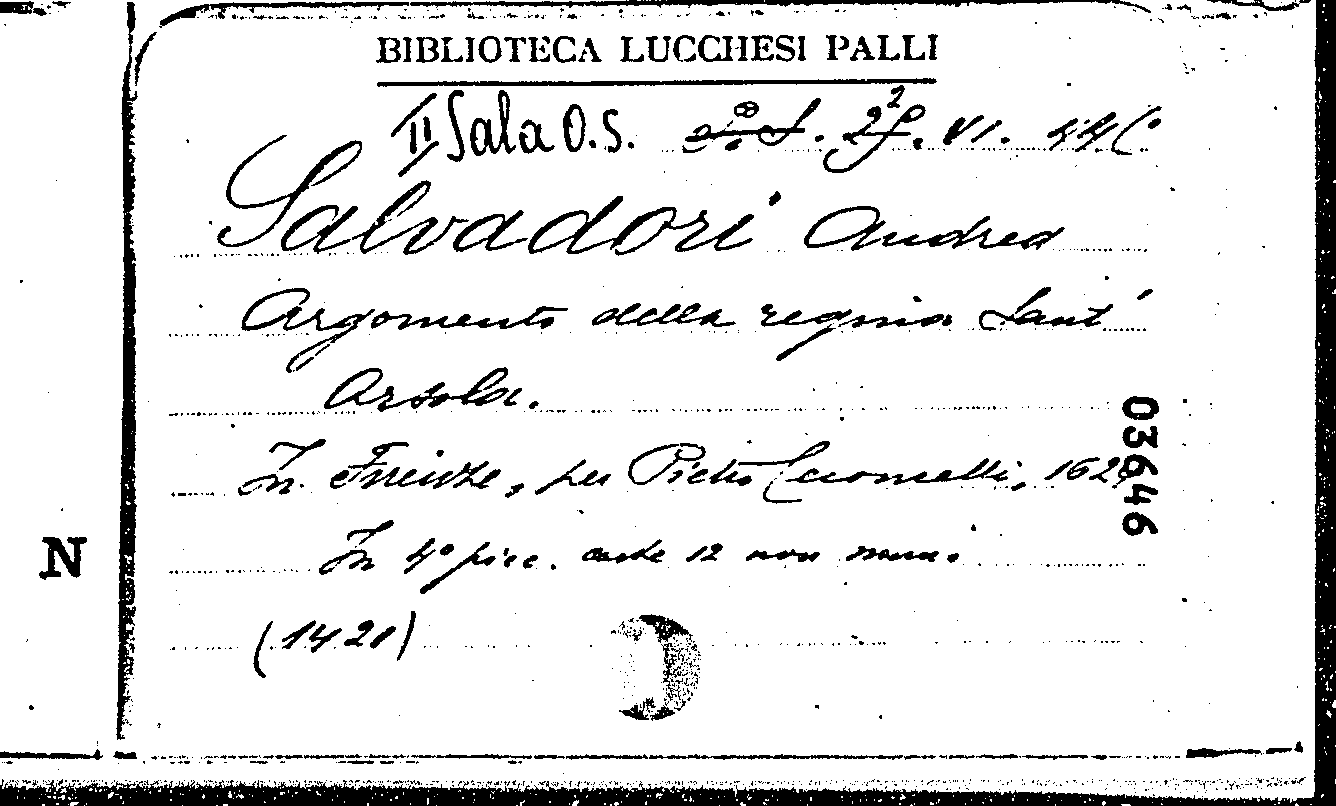 BIBLIOTECA LUCCHESI PALLI
II Sala O.S. VI. 44
Salvadori Andrea
Argomento della regina Sant'
Orsola.
In Firenze, per Pietro Cecconcelli, 162
In 4° picc. carte 12 non num.
(1421)
03646
N